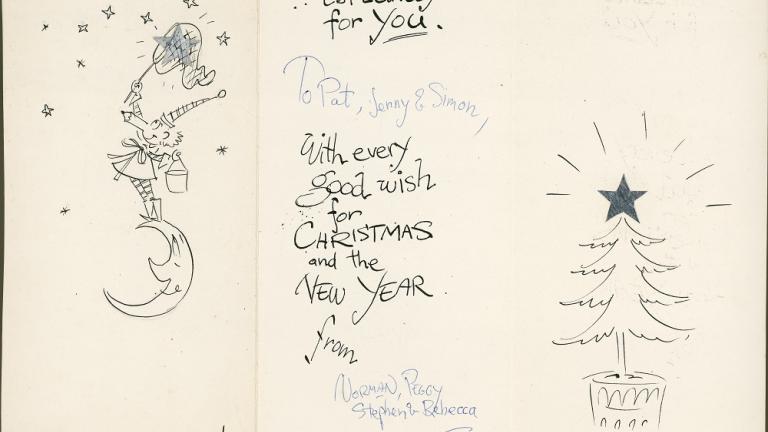 for YOU.
To Pat, Jenny & Simon,
With every
good wish
for
CHRISTMAS
and the
NEW YEAR
from
NORMAN, PEGGY
Stephen & Rebecca